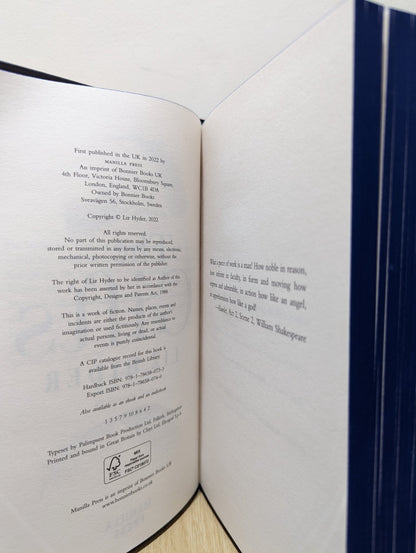 First published in the UK in 2022 by
MANILLA PRESS
An imprint of Bonnier Books UK
4th Floor, Victoria House, Bloomsbury Square,
London, England, WC1B 4DA
Owned by Bonnier Books
Sveavägen 56, Stockholm, Sweden
Copyright © Liz Hyder, 2022
All rights reserved.
No part of this publication may be reproduced,
stored or transmitted in any form by any means, electronic,
mechanical, photocopying or otherwise, without the
prior written permission of the publisher.
The right of Liz Hyder to be identified as Author of this
work has been asserted by her in accordance with the
Copyright, Designs and Patents Act, 1988
This is a work of fiction. Names, places, events and
incidents are either the products of the author's
imagination or used fictitiously. Any resemblance to
actual persons, living or dead, or actual
events is purely coincidental.
A CIP catalogue record for this book is
available from the British Library.
Hardback ISBN: 978-1-78658-073-3
Export ISBN: 978-1-78658-074-0
Also available as an ebook and an audiobook
1 3 5 7 9 10 8 6 4 2
Typeset by Palimpsest Book Production Ltd, Falkirk, Stirlingshire
Printed and bound in Great Britain by Clays Ltd, Elcograf S.p.A.
FSC
MIX
Manilla Press is an imprint of Bonnier Books UK
www.bonnierbooks.co.uk
What a piece of work is a man! How noble in reason,
how infinite in faculty, in form and moving how
express and admirable, in action how like an angel,
in apprehension how like a god!
—Hamlet, Act 2, Scene 2, William Shakespeare